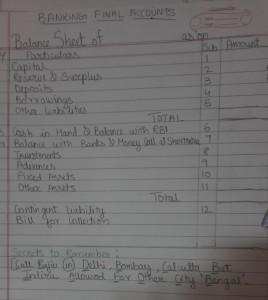 BANKING FINAL ACCOUNTS
Balance Sheet of as on
Particulars Sch Amount
Capital 1
Reserve & Surplus 2
Deposits 3
Borrowings 4
Other Liabilities 5
TOTAL
Cash in Hand & Balance with RBI 6
Balance with Banks & Money Call at Short notice 7
Investments 8
Advances 9
Fixed Assets 10
Other Assets 11
Total
Contingent Liability 12
Bill for Collection
Secrets to Remember:
Delhi, Bombay, Calcutta But
Allowed For Other City "Bengal"